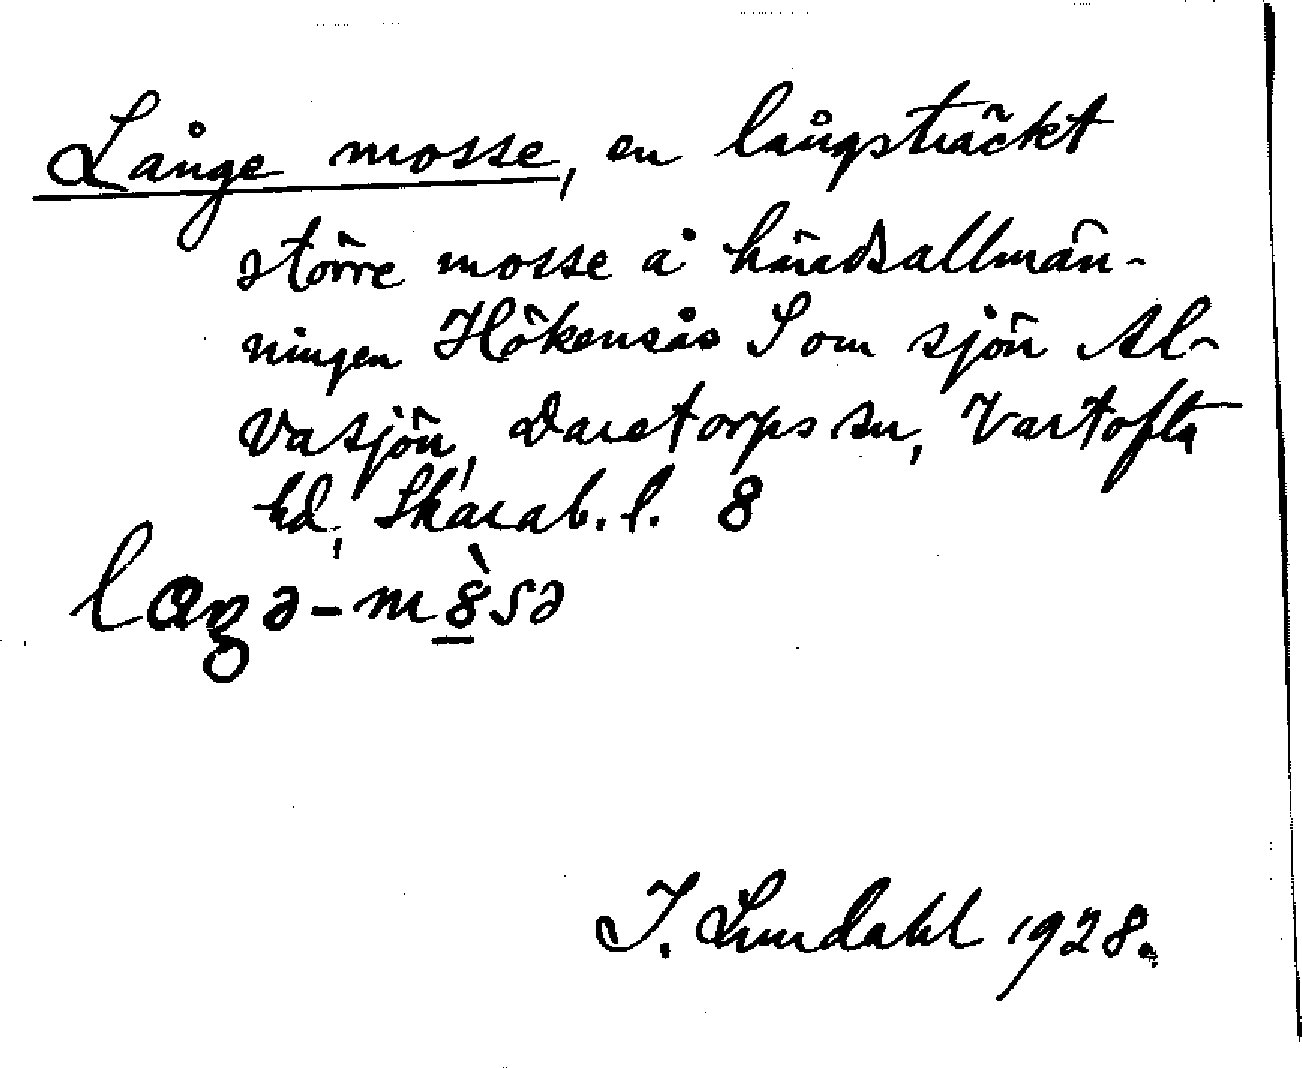 Långe mosse, en långsträckt
större mosse å häradsallmän-
ningen Hökensås S om sjön Al-
vasjön, Daretorps sn, Vartofta
hd, Skarab. l. 8
I. Lundahl 1928.